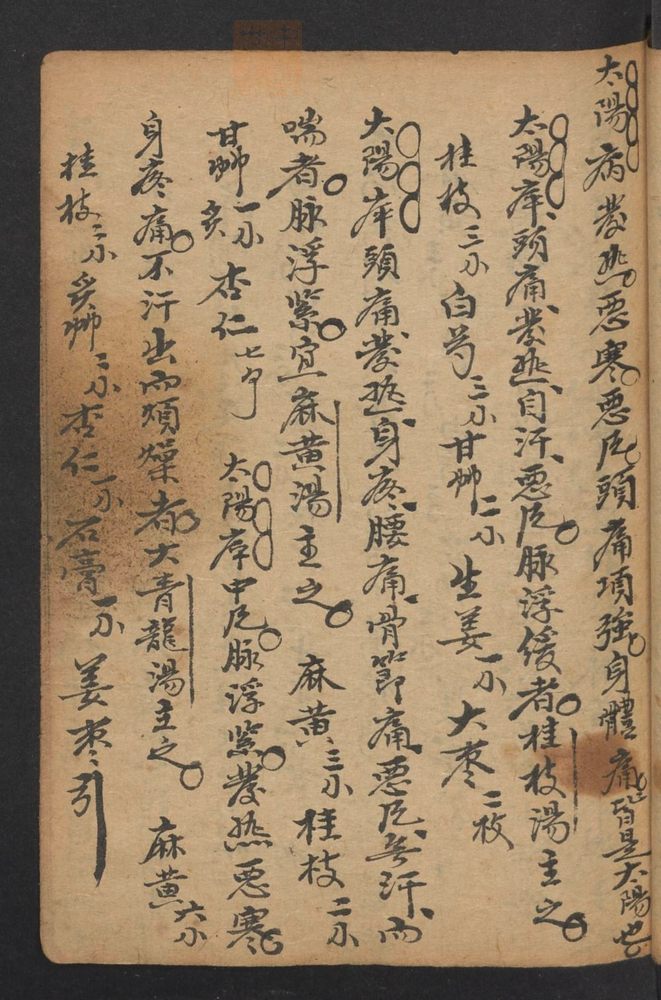 太陽病發熱惡寒惡风頭痛項强身體痛皆是太陽也
太陽症頭痛發熱自汗惡风脉浮缓者桂枝湯主之
桂枝三小白芍三小甘艸二小生姜一小大枣二枚
太陽症頭痛發熱身疼腰痛骨節痛惡风無汗而
喘者脉浮紧宜麻黄湯主之 麻黄三小桂枝二小
甘艸一小炙杏仁七个 太陽症中风脉浮紧發熱惡寒
身疼痛不汗出而煩燥者大青龍湯主之 麻黄六小
桂枝二小炙艸二小杏仁一小石膏一小姜枣引